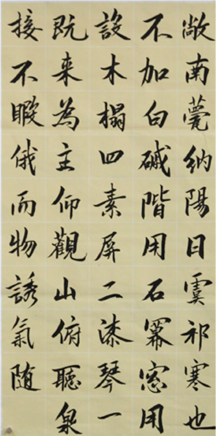 敞南甍納陽日虞祁寒也
不加白磩階用石冪窓用
設木榻四素屏二漆琴一
既来為主仰觀山俯聽泉
接不暇俄而物誘氣随